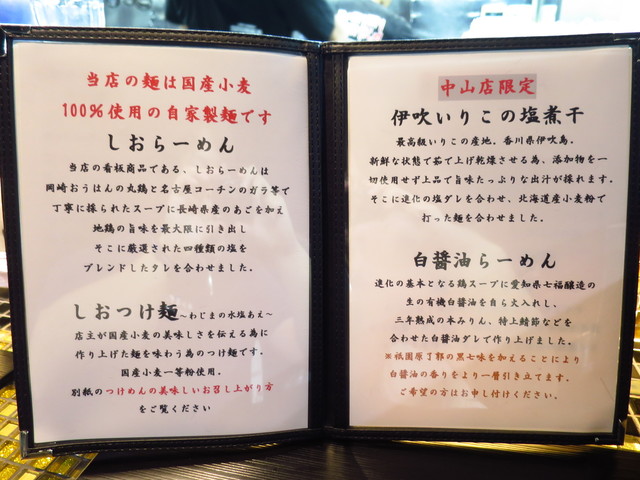 当店の麺は国産小麦
100%使用の自家製麺です
しおらーめん
当店の看板商品である、しおらーめんは
岡崎おうはんの丸鶏と名古屋コーチンのガラ等で
丁寧に採られたスープに長崎県産のあごを加え
地鶏の旨味を最大限に引き出し
そこに厳選された四種類の塩を
ブレンドしたタレを合わせました。
しおつけ麺～わじまの水塩あえ～
店主が国産小麦の美味しさを伝える為に
作り上げた麺を味わう為のつけ麺です。
国産小麦一等粉使用。
別紙のつけめんの美味しいお召し上がり方
をご覧ください
中山店限定
伊吹いりこの塩煮干
最高級いりこの産地。香川県伊吹島。
新鮮な状態で茹で上げ乾燥させる為、添加物を一
切使用せず上品で旨味たっぷりな出汁が採れます。
そこに進化の塩ダレを合わせ、北海道産小麦粉で
打った麺を合わせました。
白醤油らーめん
進化の基本となる鶏スープに愛知県七福醸造の
生の有機白醤油を自ら火入れし、
三年熟成の本みりん、特上鯖節などを
合わせた白醤油ダレで作り上げました。
※祇園原了郭の黒七味を加えることにより
白醤油の香りをより一層引き立てます。
ご希望の方はお申し付けください。